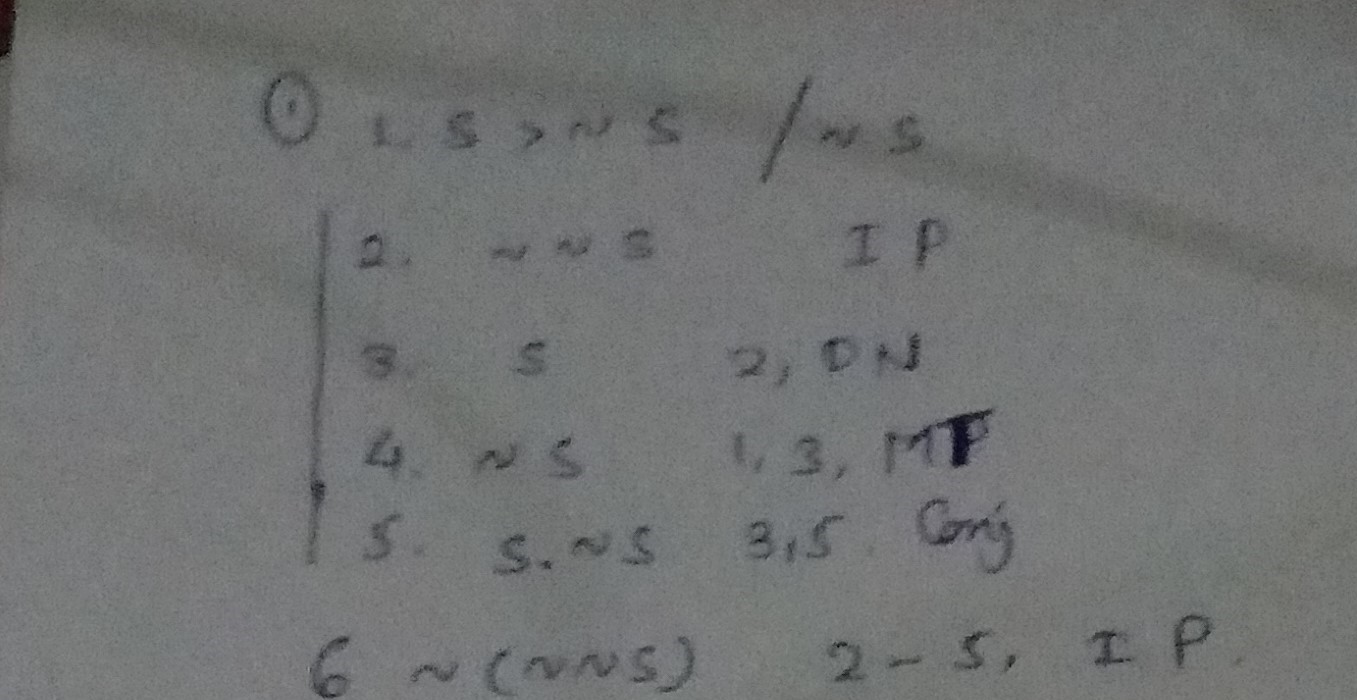 ① 1. S > ~ S / ~ S
2. ~ ~ S I P
3. S 2, DN
4. ~ S 1, 3, MP
5. S . ~ S 3,5. Conj
6 ~ (~~S) 2 - 5, I P.